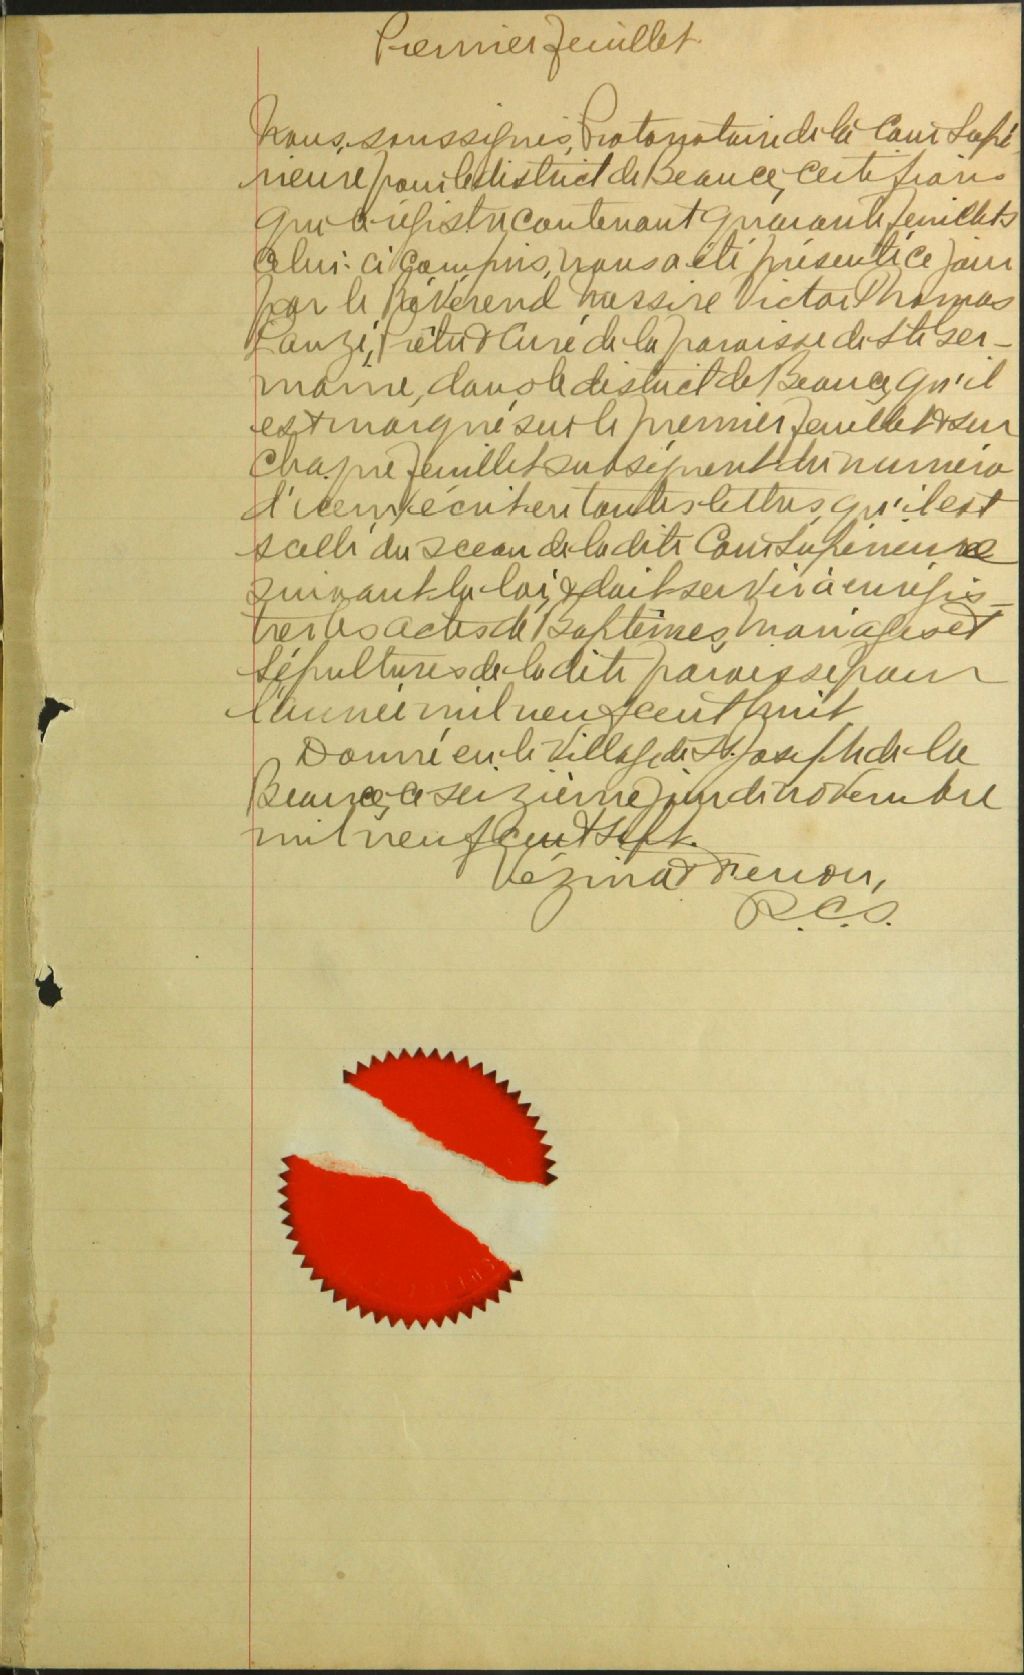 Premier feuillet
Nous, soussignés, Protonotaire de la Cour Supé-
rieure pour le district de Beauce, certifions
que ce régistre, contenant quarante feuillets
celui-ci compris, nous a été présenté ce jour
par le Révérend Messire Victor Thomas
Lauzé, Prêtre & Curé de la paroisse de Ste Ger-
maine, dans le district de Beauce, qu'il
est marqué sur le premier feuillet & sur
chaque feuillet subséquent du numéro
d'icelui, écrit en toutes lettres, qu'il est
scellé du sceau de la dite Cour Supérieure
suivant la loi, & doit servir à enrégis-
trer les actes de Baptêmes, Mariages et
Sépultures de la dite paroisse pour
l'année mil neuf cent huit
Donné en le Village de St. Joseph de la
Beauce, ce seizième jour de novembre
mil neuf cent sept.
Vézina &
P.C.S.